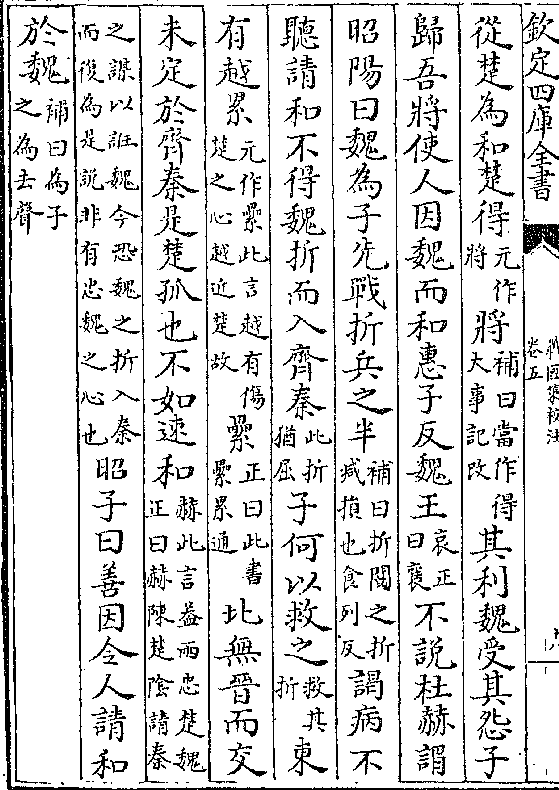 欽定四庫全書
卷五
從楚為和楚得元作將將補曰當作得大事記改其利魏受其怨子
歸吾將使人因魏而和惠子反魏王哀正曰襄不說杜赫謂
昭陽曰魏為子先戰折兵之半補曰折閱之折減損也食列反謁病不
聽請和不得魏折而入齊秦此折猶屈子何以救之救其折東
有越累元作纍此言越有傷楚之心越近楚故纍正曰此書纍累通北無晉而交
未定於齊秦是楚孤也不如速和赫此言益兩忠楚魏正曰赫陳楚陰請秦
之謀以誑魏今恐魏之折入秦而後為是說非有忠魏之心也昭子曰善因令人請和
於魏補曰為子之為去聲